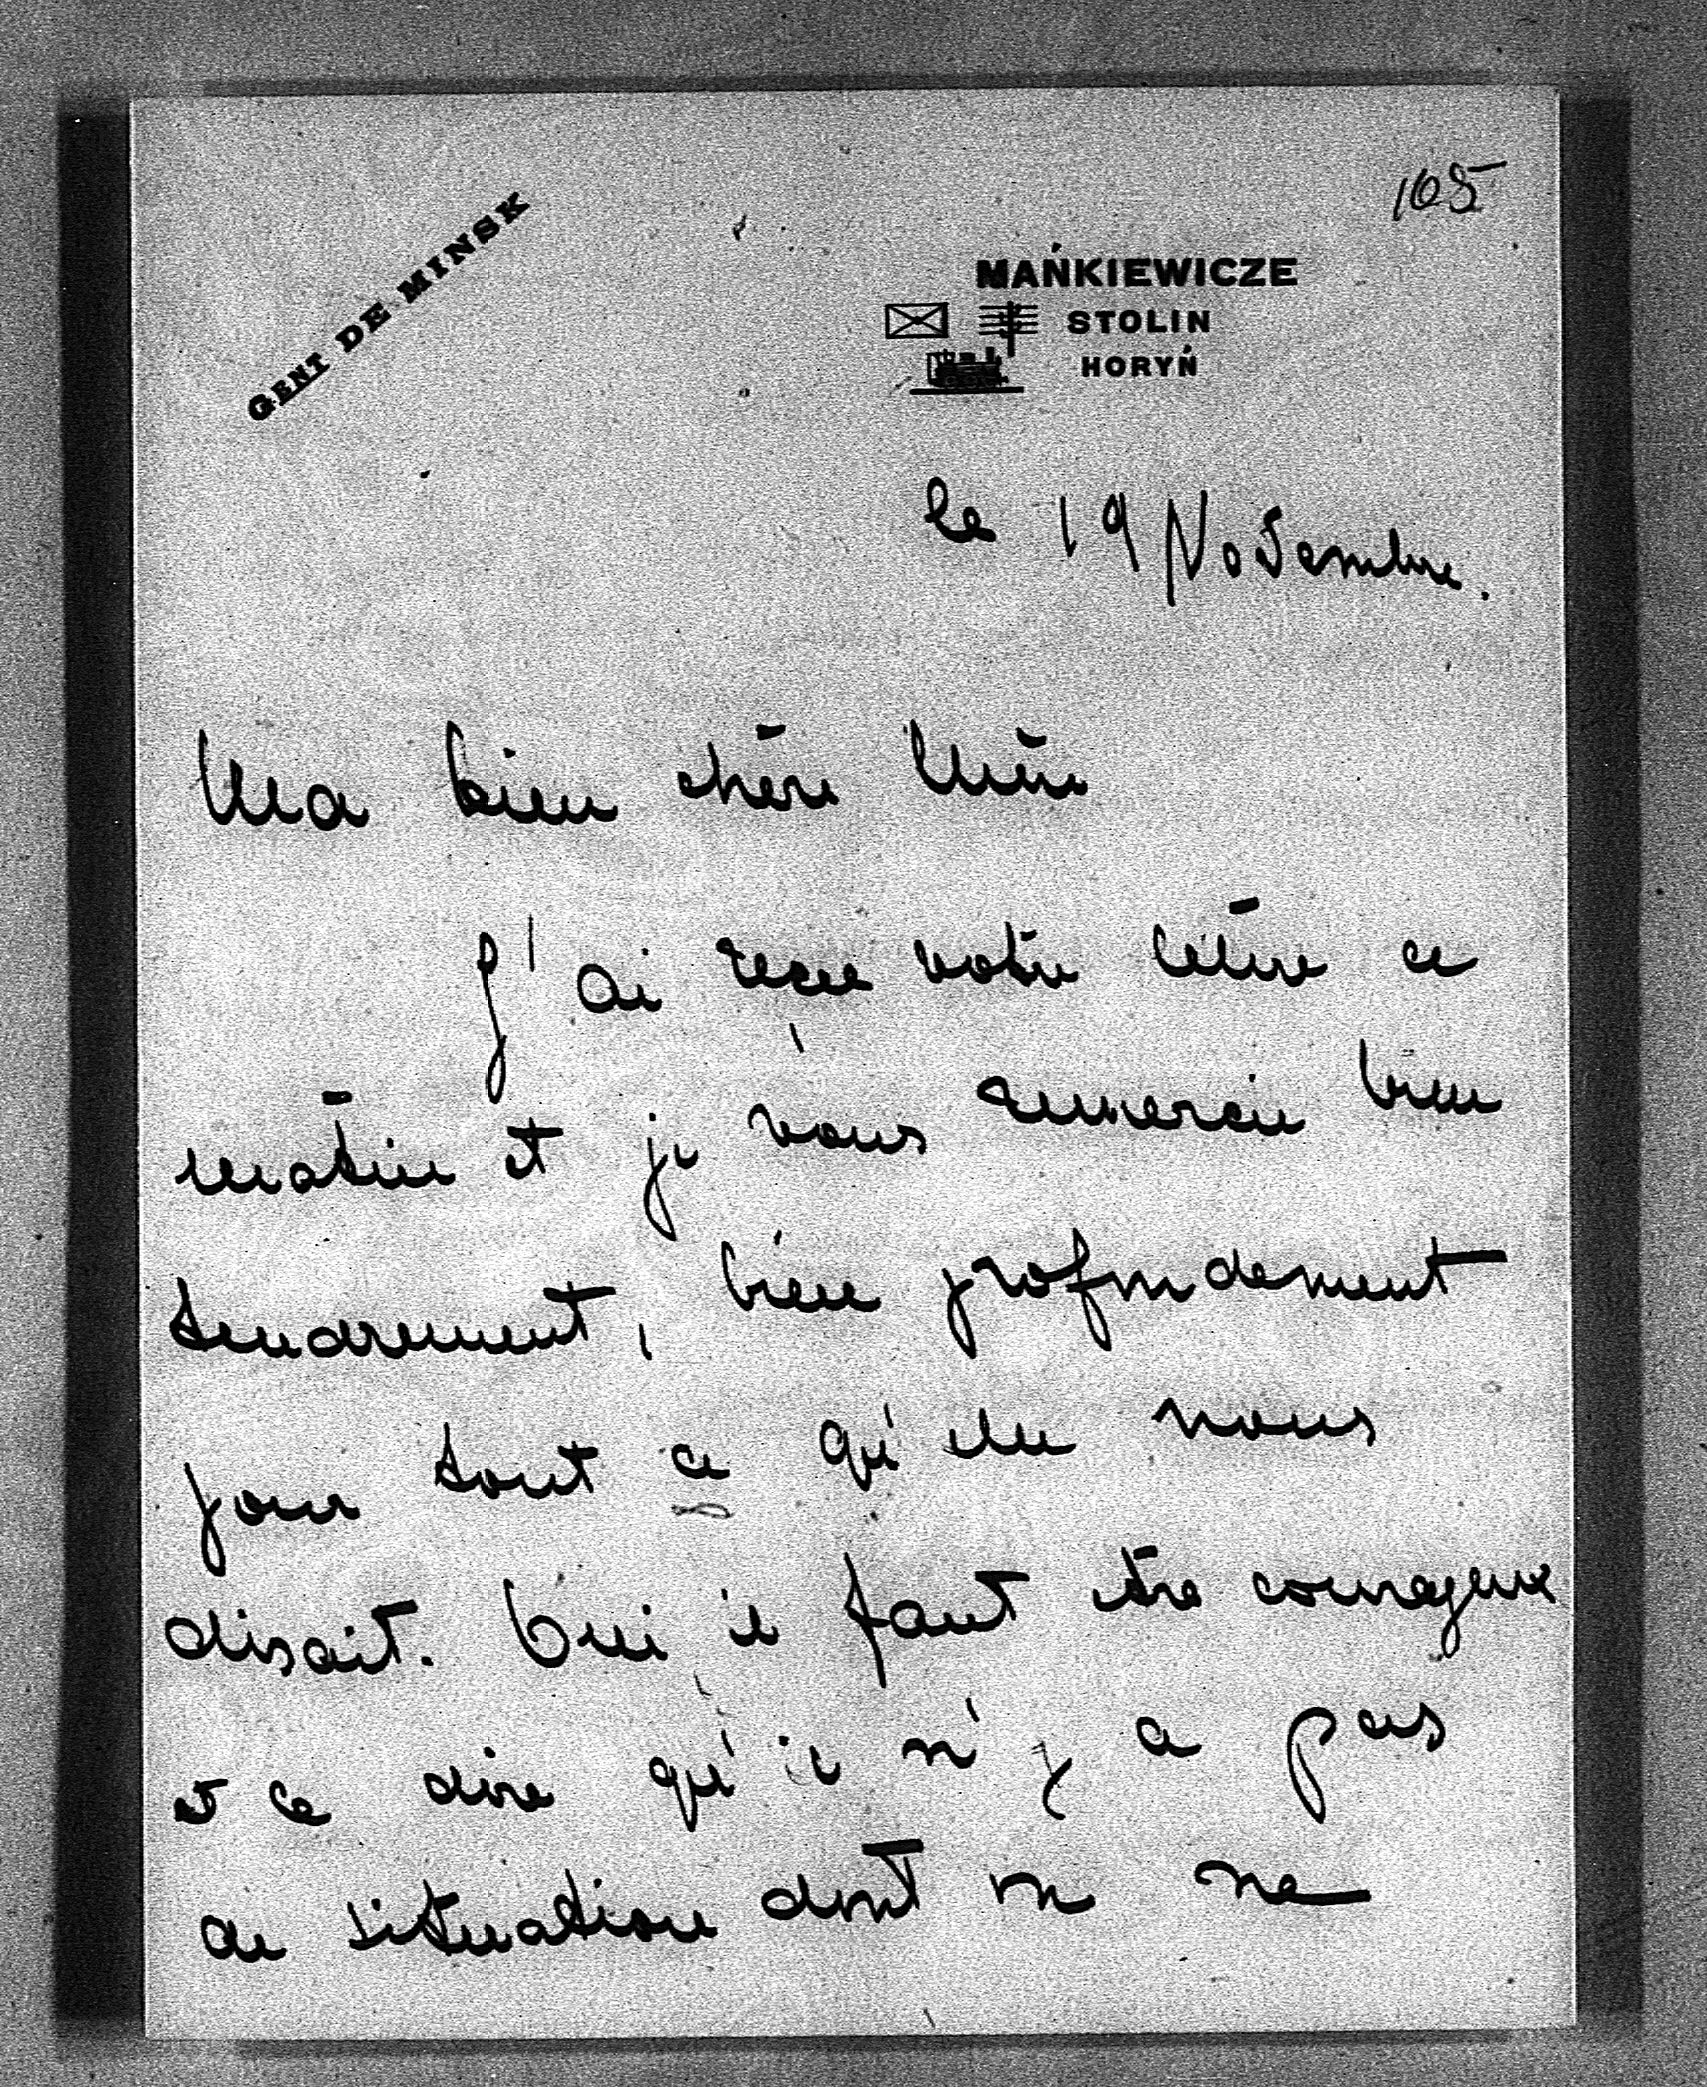 105
GENT DE MINSK
MAŃKIEWICZE
STOLIN
HORYŃ
le 19 Novembre.
Ma bien chère Mère
J'ai reçu votre lettre ce
matin et je vous remercie bien
tendrement, bien profondement
pour tout ce qu'elle nous
disait. Oui il faut être courageux
et se dire qu'il n'y a pas
de situation dont on ne